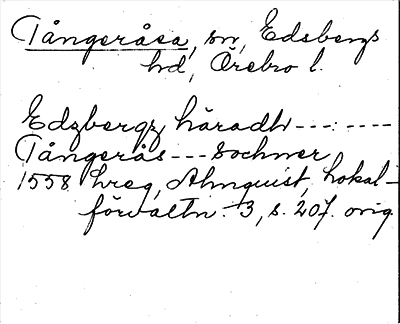 Tångeråsa, sn, Edsbergs
hd, Örebro l.
Edzbergz häradh---:----
Tångerås---Sochner
1558 hreg, Almquist, Lokal-
förvaltn. 3, s. 207. orig.